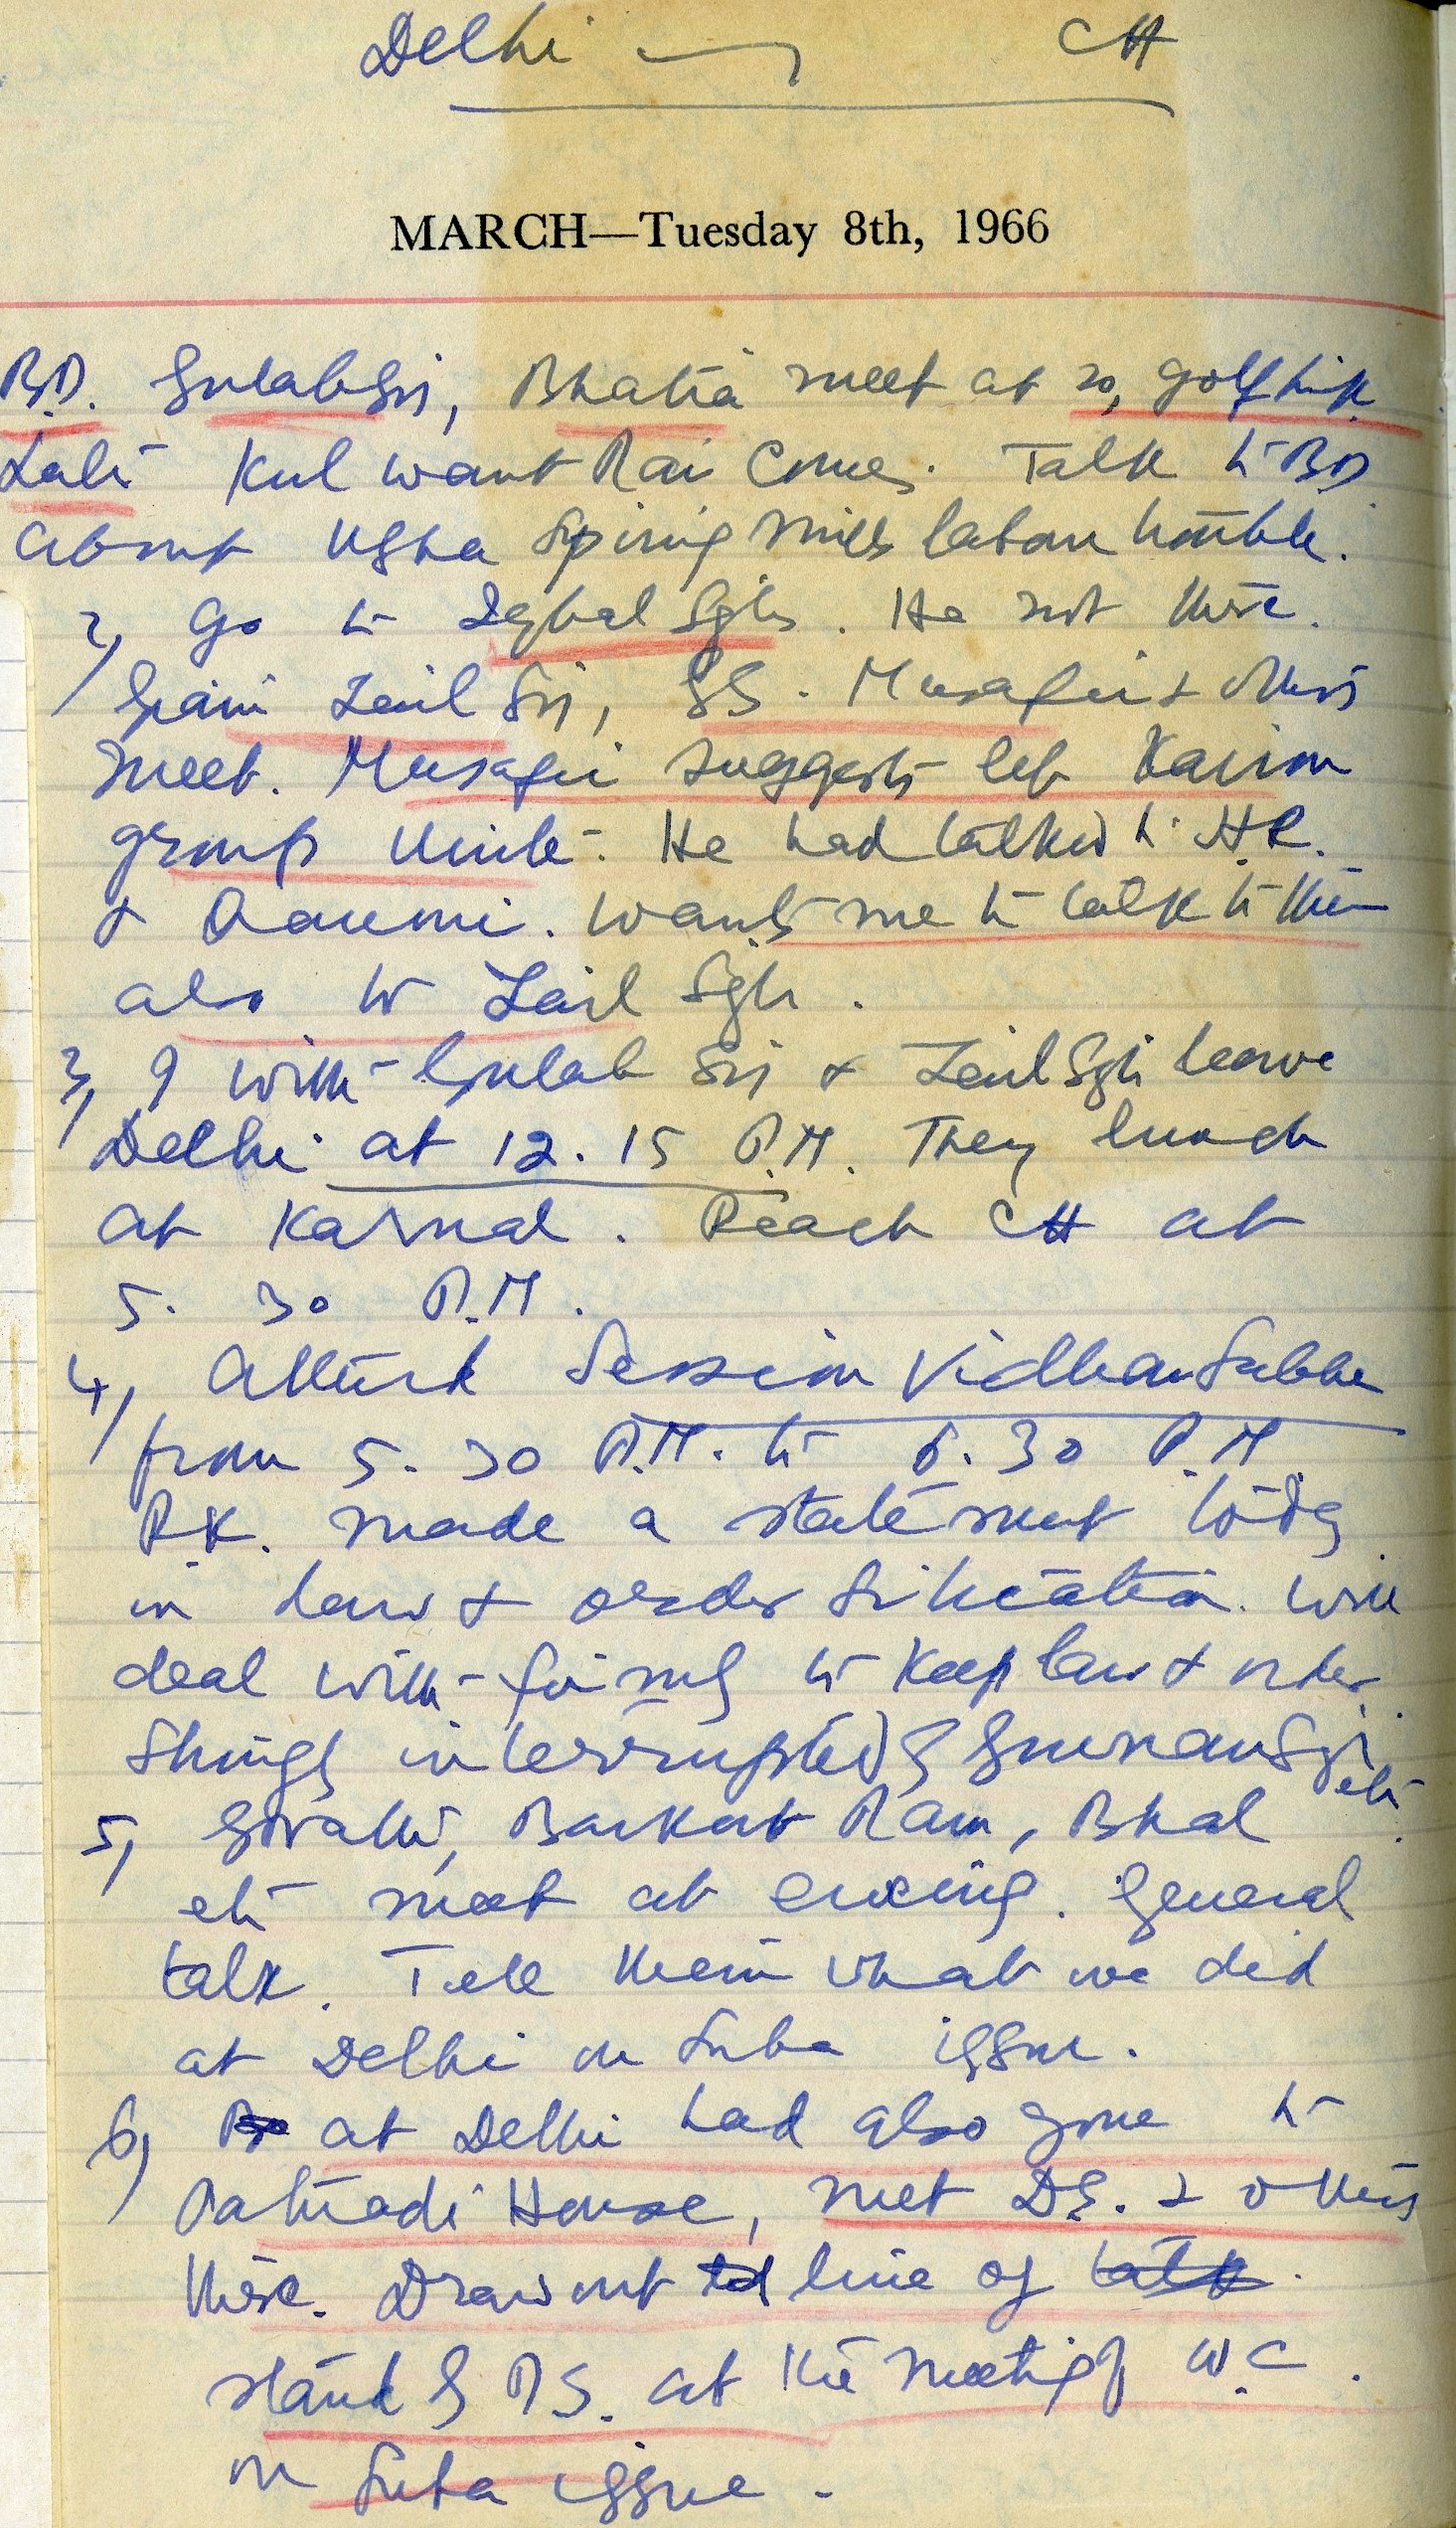 Delhi — CH
MARCH—Tuesday 8th, 1966
B.D. Gulab Sgj, Bhatia meet at 20, golf link
Lali Kulwant Rai comes. Talk to BD
about Usha Spining Mills labour trouble.
2, Go to Iqbal Sgh. He not there.
Giani Zail Sgj, GS. Musafir & others
meet. Musafir suggests let Kairon
group unite. He had talked to H.R.
& . wants me to talk to them
also to Zail Sgh.
3, I with Gulab Sgj & Zail Sgh leave
Delhi at 12.15 P.M. They lunch
at Karnal. Reach CH at
5.30 P.M.
4, Attend Session Vidhan Sabha
from 5.30 P.M. to 6.30 P.M
R.K. made a statement today
in law & order situation. Will
deal with firmly to keep law & order
strongly interrupted by Gurnam Sgj etc.
5, Barkat Ram, Bhal
etc meet at evening. General
talk. Tell them what we did
at Delhi on Suba issue.
6, at Delhi had also gone to
Pataudi House, met D.S. & others
there. Draw out line of talk.
stand by P.S. at the meeting of W.C.
on Suba issue.